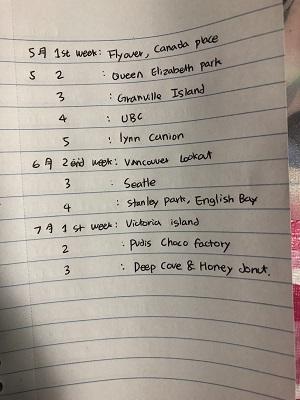 5月 1st week: Flyover, Canada place
5 2 : Queen Elizabeth park
3 : Granville Island
4 : UBC
5 : lynn Canion
6月 2nd week: Vancouver Lookout
3 : Seatle
4 : Stanley Park, English Bay
7月 1st week: Victoria island
2 : Pudis Choco factory
3 : Deep Cove & Honey donut.